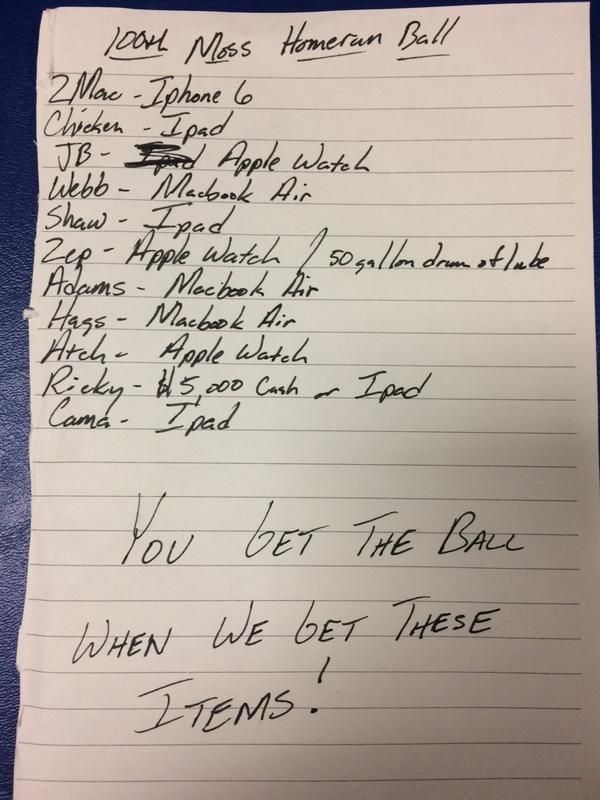 100th Moss Homerun Ball
ZMac - Iphone 6
Chicken - Ipad
JB - Ipad Apple Watch
Webb - Macbook Air
Shaw - Ipad
Zep - Apple Watch / 50 gallon drum of lube
Adams - Macbook Air
Hags - Macbook Air
Atch - Apple Watch
Ricky - $15,000 Cash or Ipad
Cama - Ipad
YOU GET THE BALL
WHEN WE GET THESE
ITEMS!